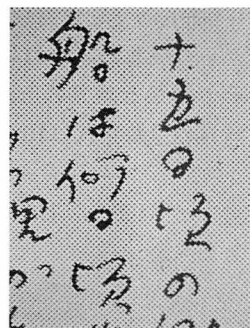 十五日頃の
船は何日頃